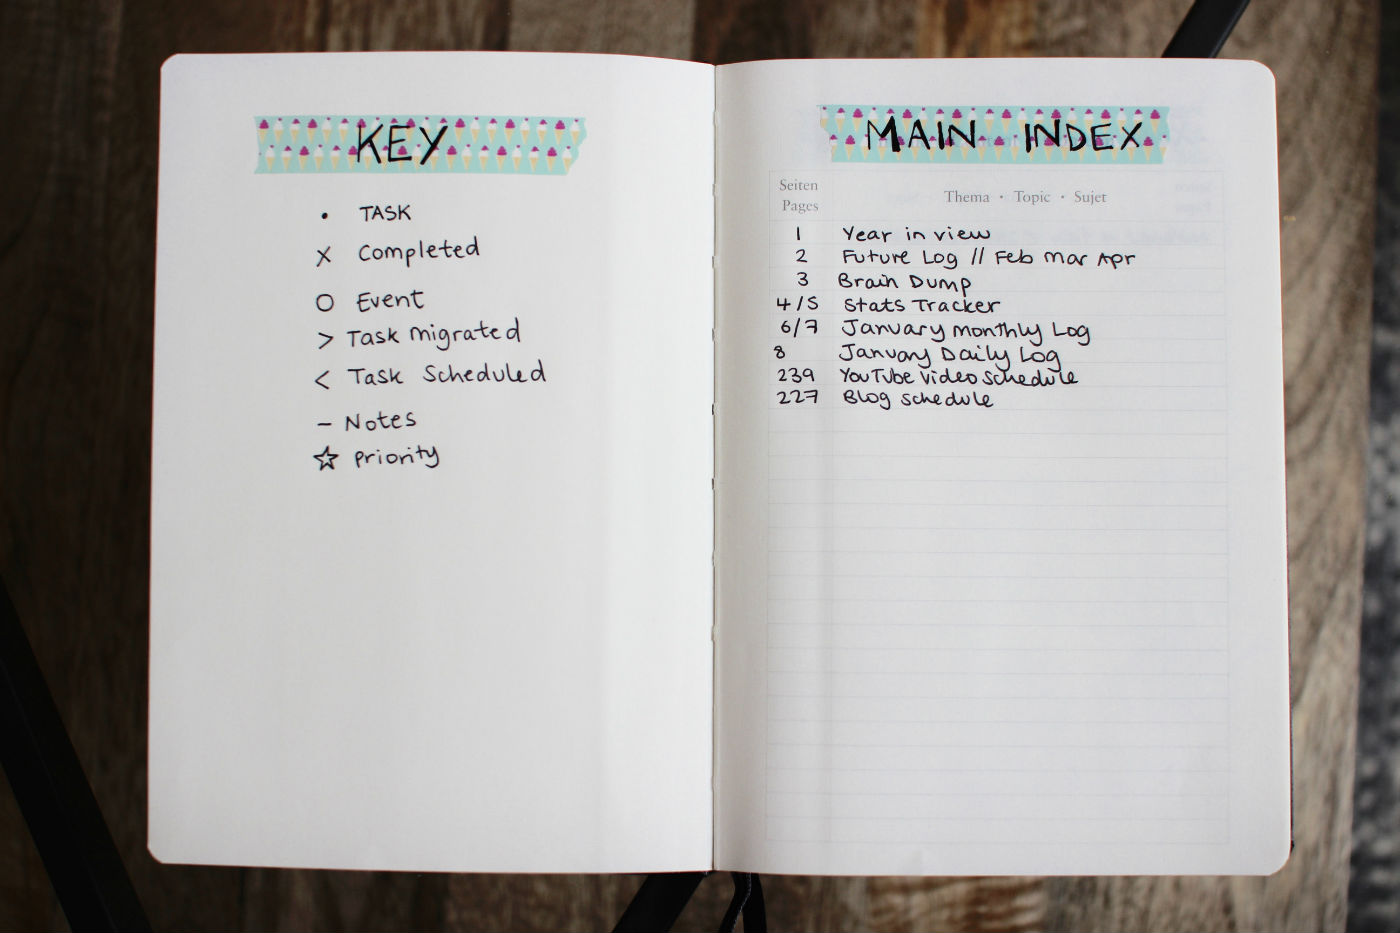 KEY
• TASK
x Completed
O Event
> Task migrated
< Task Scheduled
– Notes
☆ priority
MAIN INDEX
Seiten
Pages
Thema · Topic · Sujet
1 Year in view
2 Future Log // Feb Mar Apr
3 Brain Dump
4/5 Stats Tracker
6/7 January Monthly Log
8 January Daily Log
239 YouTube Video Schedule
227 Blog Schedule